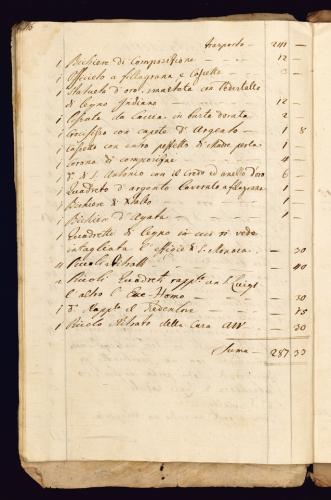 trasporto — 241 —
1 Bichiere di Composizione — 12 —
1 Officieto a filagrana e Capetto — 3 —
1 Statueta d'oro smaltata con Pedestallo
di Legno Indiano — 12 —
1 da Caccia in busta dorata — 2 —
1 Crocefisso con Capete d'Argento — 1 8
1 Capetto con entro pezzetto di Madre perla 1 —
1 Corona di composizione — 4 —
1 d.a di S. Antonio con il Credo ed anello d'oro 6 —
1 Quadreto d'argento lavorato a filagrana — 1 —
1 Bichiere di — 1 —
1 Bichier d'Agata — 1 —
1 Quadretto di Legno in cui si vede
intagliata l'effigie di S. Monaca — — 30
4 Piccoli — — 40
2 Picoli Quadreti rapp.ti un S. Luigi
e altro l'Ecce-Homo — — 30
1 d.o Rapp.te il Redentore — — 15
1 Picolo Ritrato della Casa — — 30
Suma — 287 33